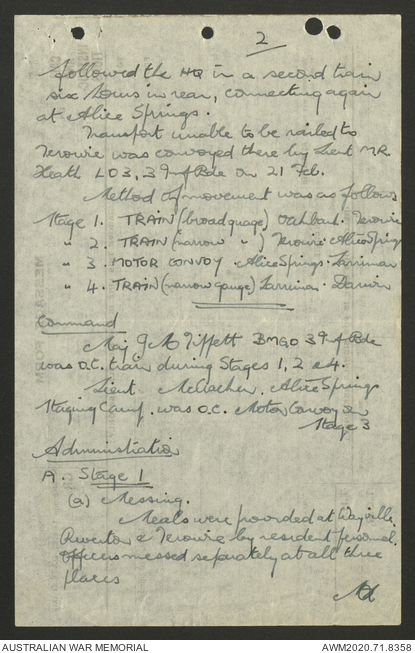 2
followed the HQ in a second train
six hours in rear, connecting again
at Alice Springs.
Transport unable to be railed to
Terowie was conveyed there by Lieut M.R.
Heath LO3, 3 Inf Bde on 21 Feb.
Method of movement was as follows
Stage 1. TRAIN (broad guage) Oakbank. Terowie
" 2. TRAIN (narrow " ) Terowie. Alice Springs
" 3. MOTOR CONVOY. Alice Springs. Larrimah
" 4. TRAIN (narrow gauge) Larrimah. Darwin
Command
Maj G M Tiffett BMGO 3 Inf Bde
was O.C. train during Stages 1, 2 & 4.
Lieut. Alice Springs
Staging Camp. was O.C. Motor Convoy on
Stage 3
Administration
A. Stage 1
(a) Messing.
Meals were provided at Wayville,
Riverton & Terowie by resident personnel.
Officers messed separately at all three
places
AUSTRALIAN WAR MEMORIAL
AWM2020.71.8358